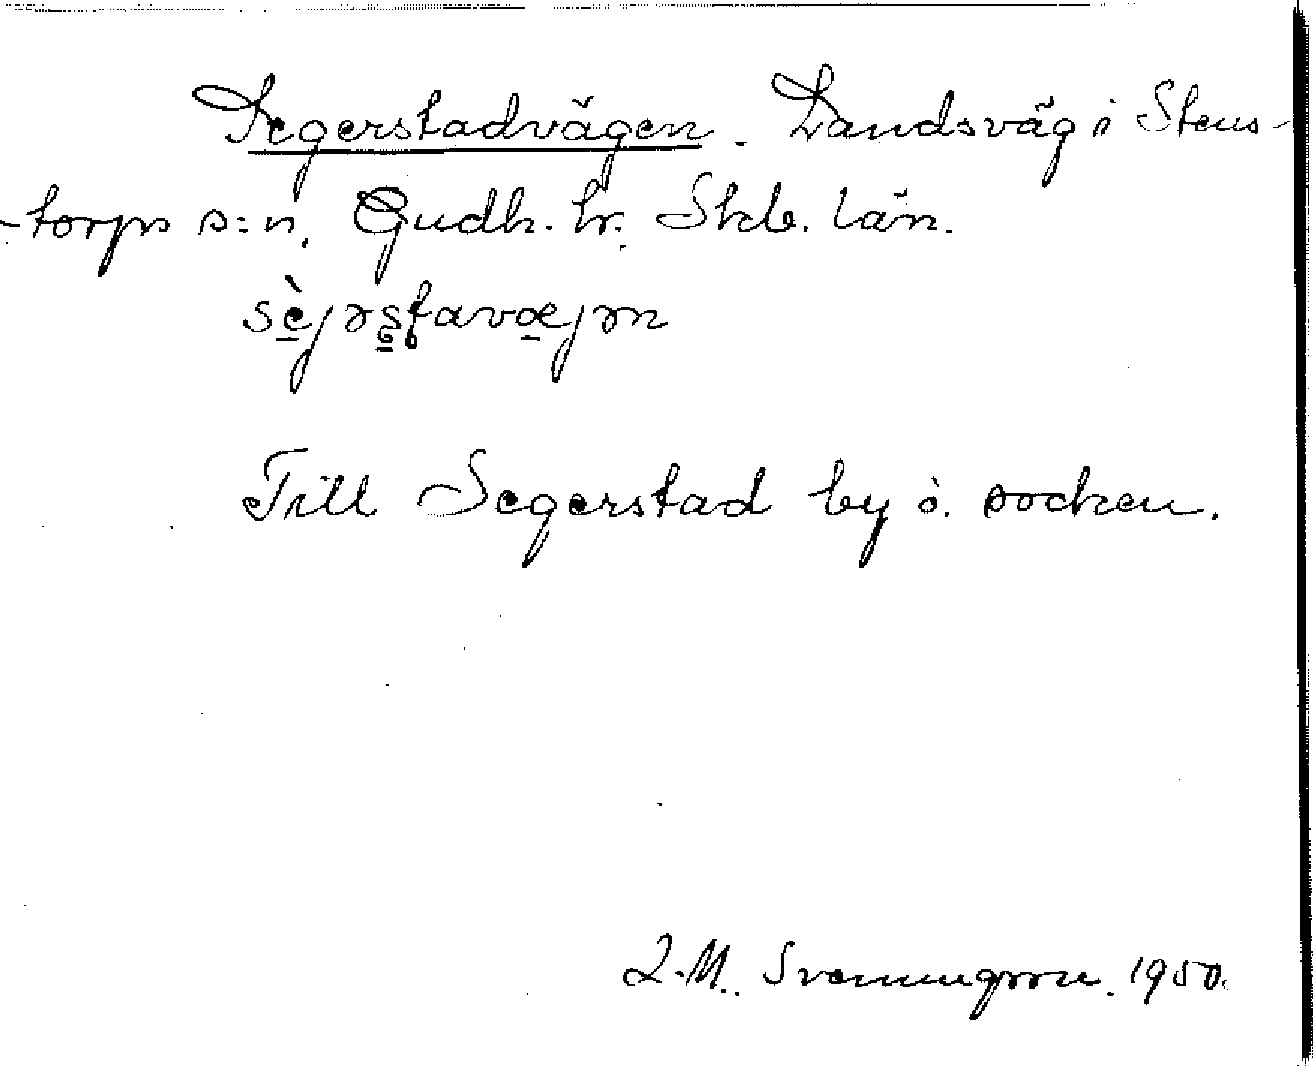 Segerstadvägen. Landsväg i Stens-
-torps s:n, Gudh. hr. Skb. län.
sèjrstavæjən
Till Segerstad by ö. socken.
L-M. Svenningsson. 1950.